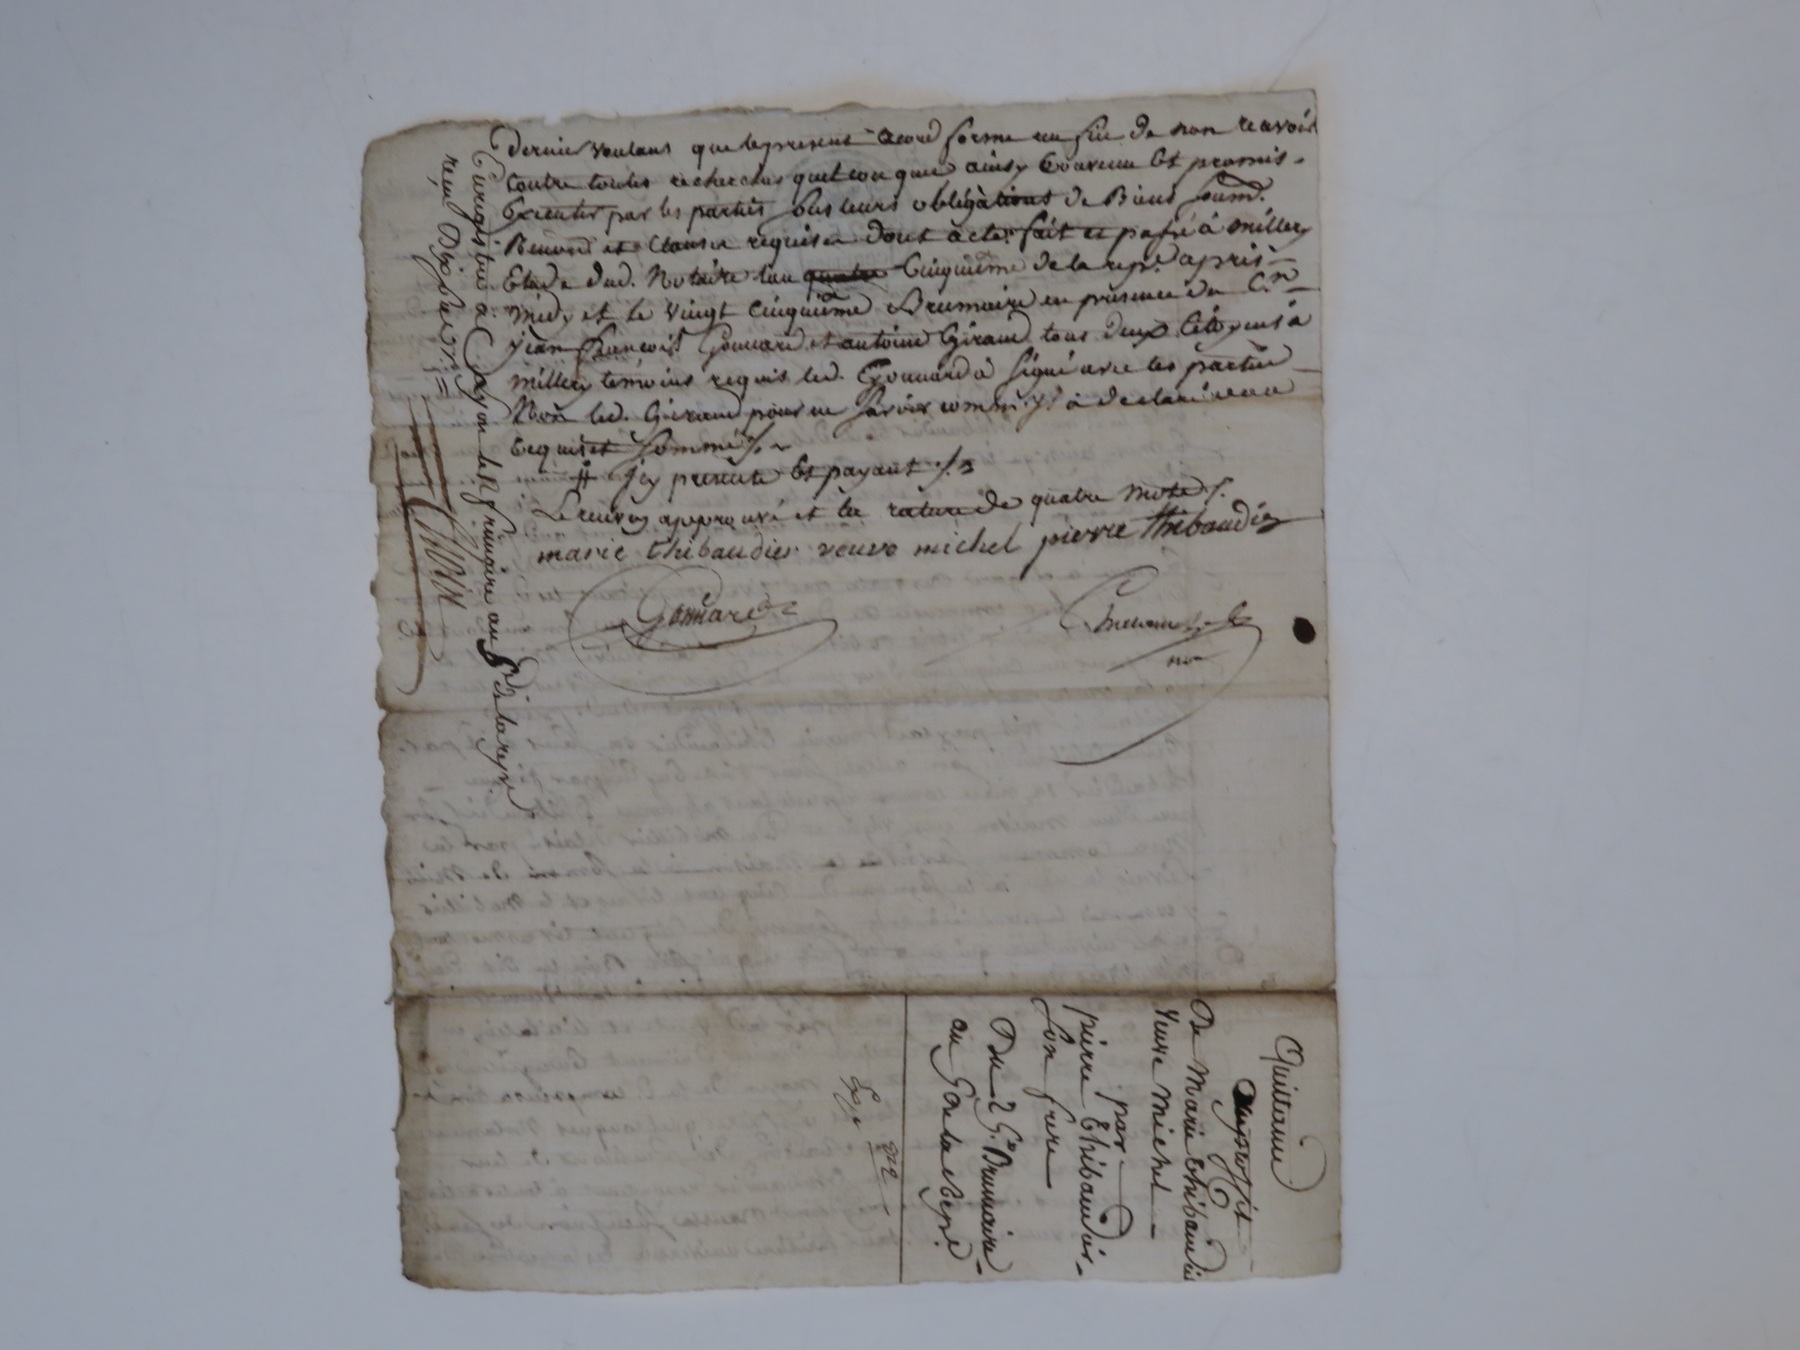 Dernier voulant que le present acord forme une fin de non recevoir
Contre toutes recherches quelconques ainsy Convenu Et promis
Executer par les parties sous leurs obligations de Biens soumd.
Renond et Clauses requises dont acte fait et passé à millery
Etude dud. Notaire l'an quatre Cinquieme de la repe. apres
midy et le vingt Cinquieme Brumaire en presence du C.en
jean François Gonnard et antoine Giraud tous deux Citoyens à
millery temoins requis led. Gonnard a signé avec les parties
Non led. Giraud pour ne savoir comme il a declaré de ce
requis et sommé
# icy presente Et payant
Le renvoy approuvé et la rature de quatre mots
marie thibaudier veuve michel pierre thibaudier
Gonnard
not
Enregistré à le frimaire an 5e de la repe
reçu
Quittance
De Marie thibaudier
veuve michel
par
pierre thibaudier
son frere
Du 25e Brumaire
an 5 de la Repe.